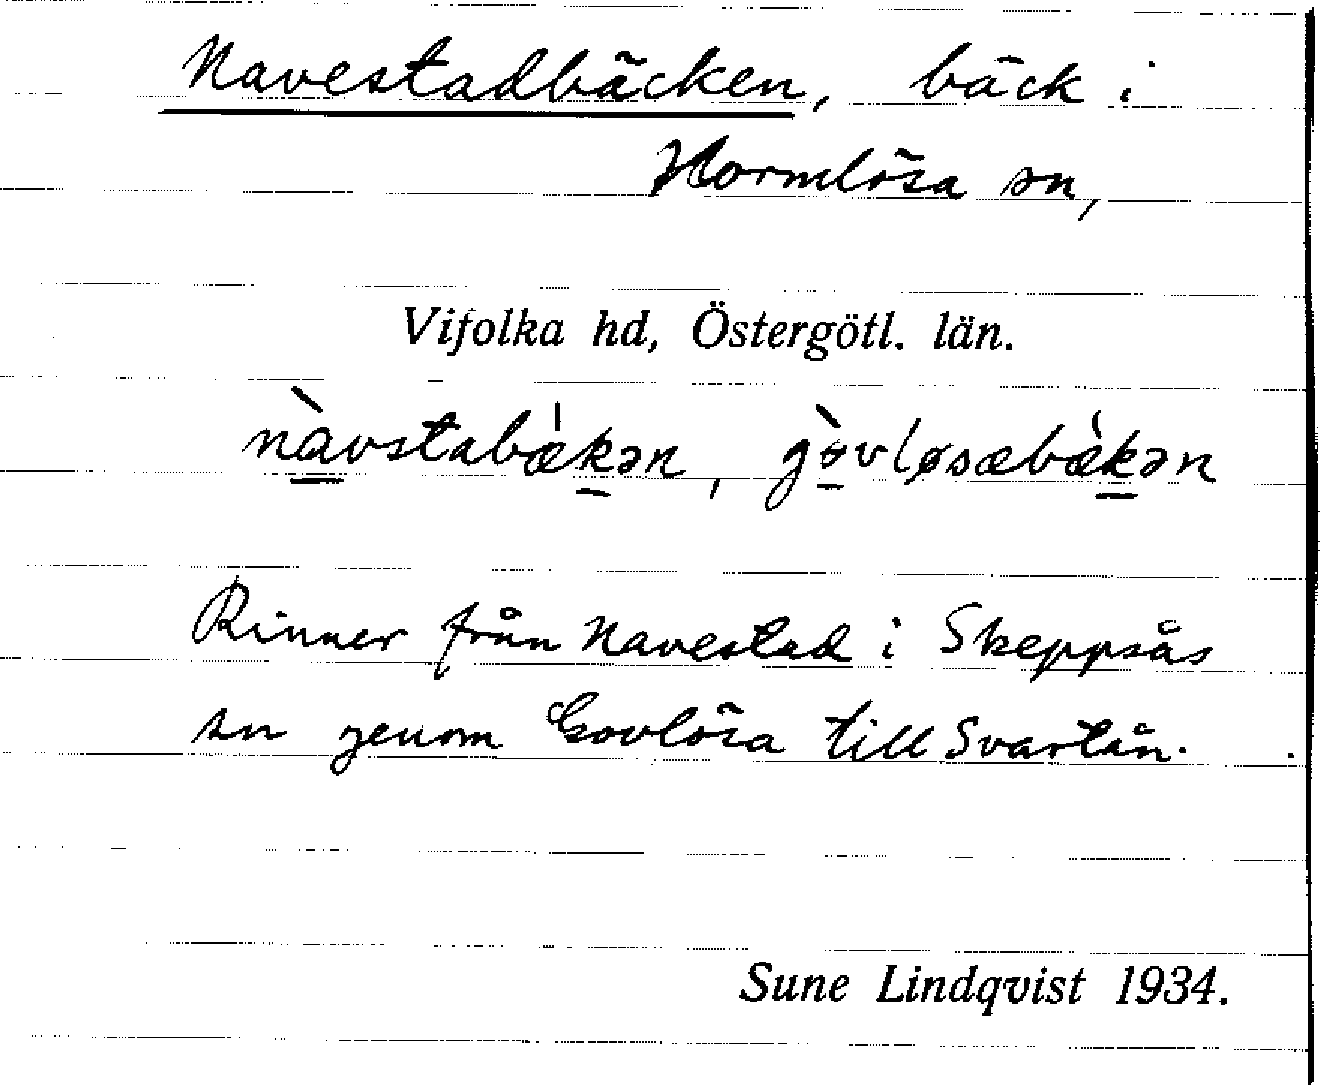 Navestadbäcken, bäck i
Normlösa sn,
Vifolka hd, Östergötl. län.
nàvstabækən, gòvløsæbækən
Rinner från Navestad i Skeppsås
sn genom Govlösa till Svartån.
Sune Lindqvist 1934.